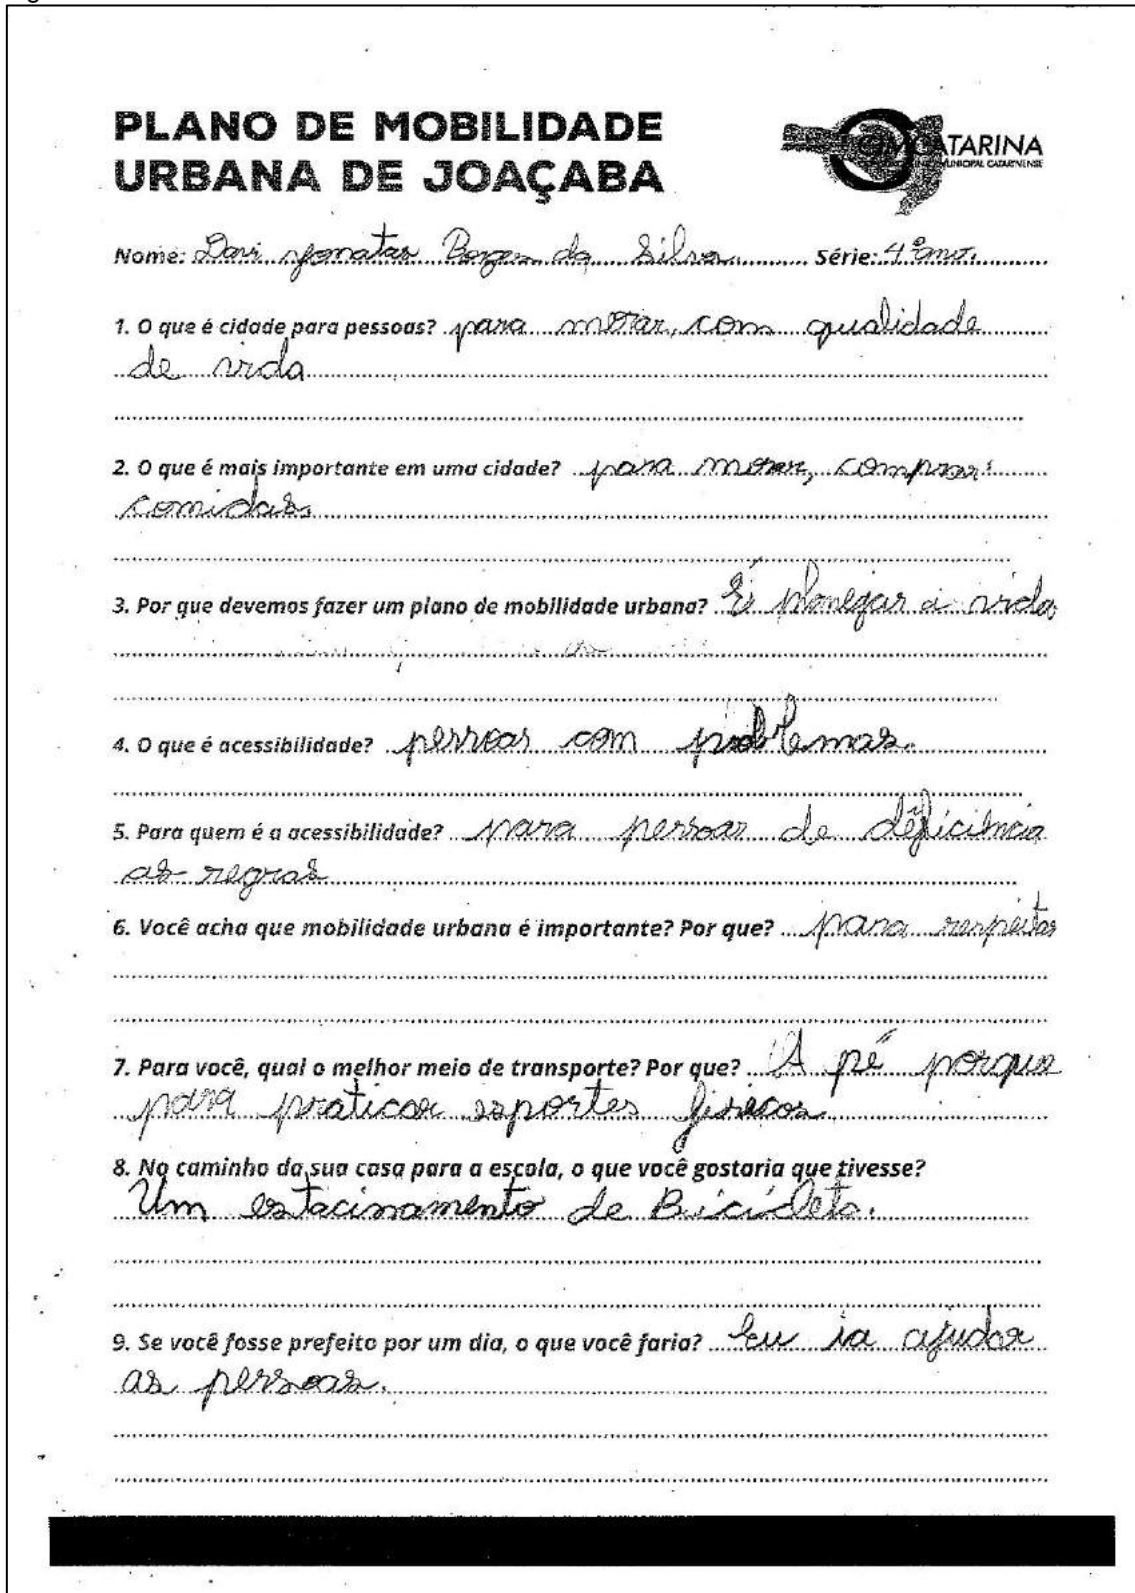 PLANO DE MOBILIDADE
URBANA DE JOAÇABA
CIMCATARINA
Nome: Davi Jonatas Borges da Silva Série: 4º ano.
1. O que é cidade para pessoas? para morar, com qualidade
de vida
2. O que é mais importante em uma cidade? para morar, comprar
comidas
3. Por que devemos fazer um plano de mobilidade urbana? É planejar a vida
4. O que é acessibilidade? pessoas com problemas.
5. Para quem é a acessibilidade? para pessoas de deficiência
as regras
6. Você acha que mobilidade urbana é importante? Por que? para respeitar
7. Para você, qual o melhor meio de transporte? Por que? A pé porque
para praticar esportes físicos
8. No caminho da sua casa para a escola, o que você gostaria que tivesse?
Um estacinamento de Bicicleta.
9. Se você fosse prefeito por um dia, o que você faria? Eu ia ajudar
as pessoas.